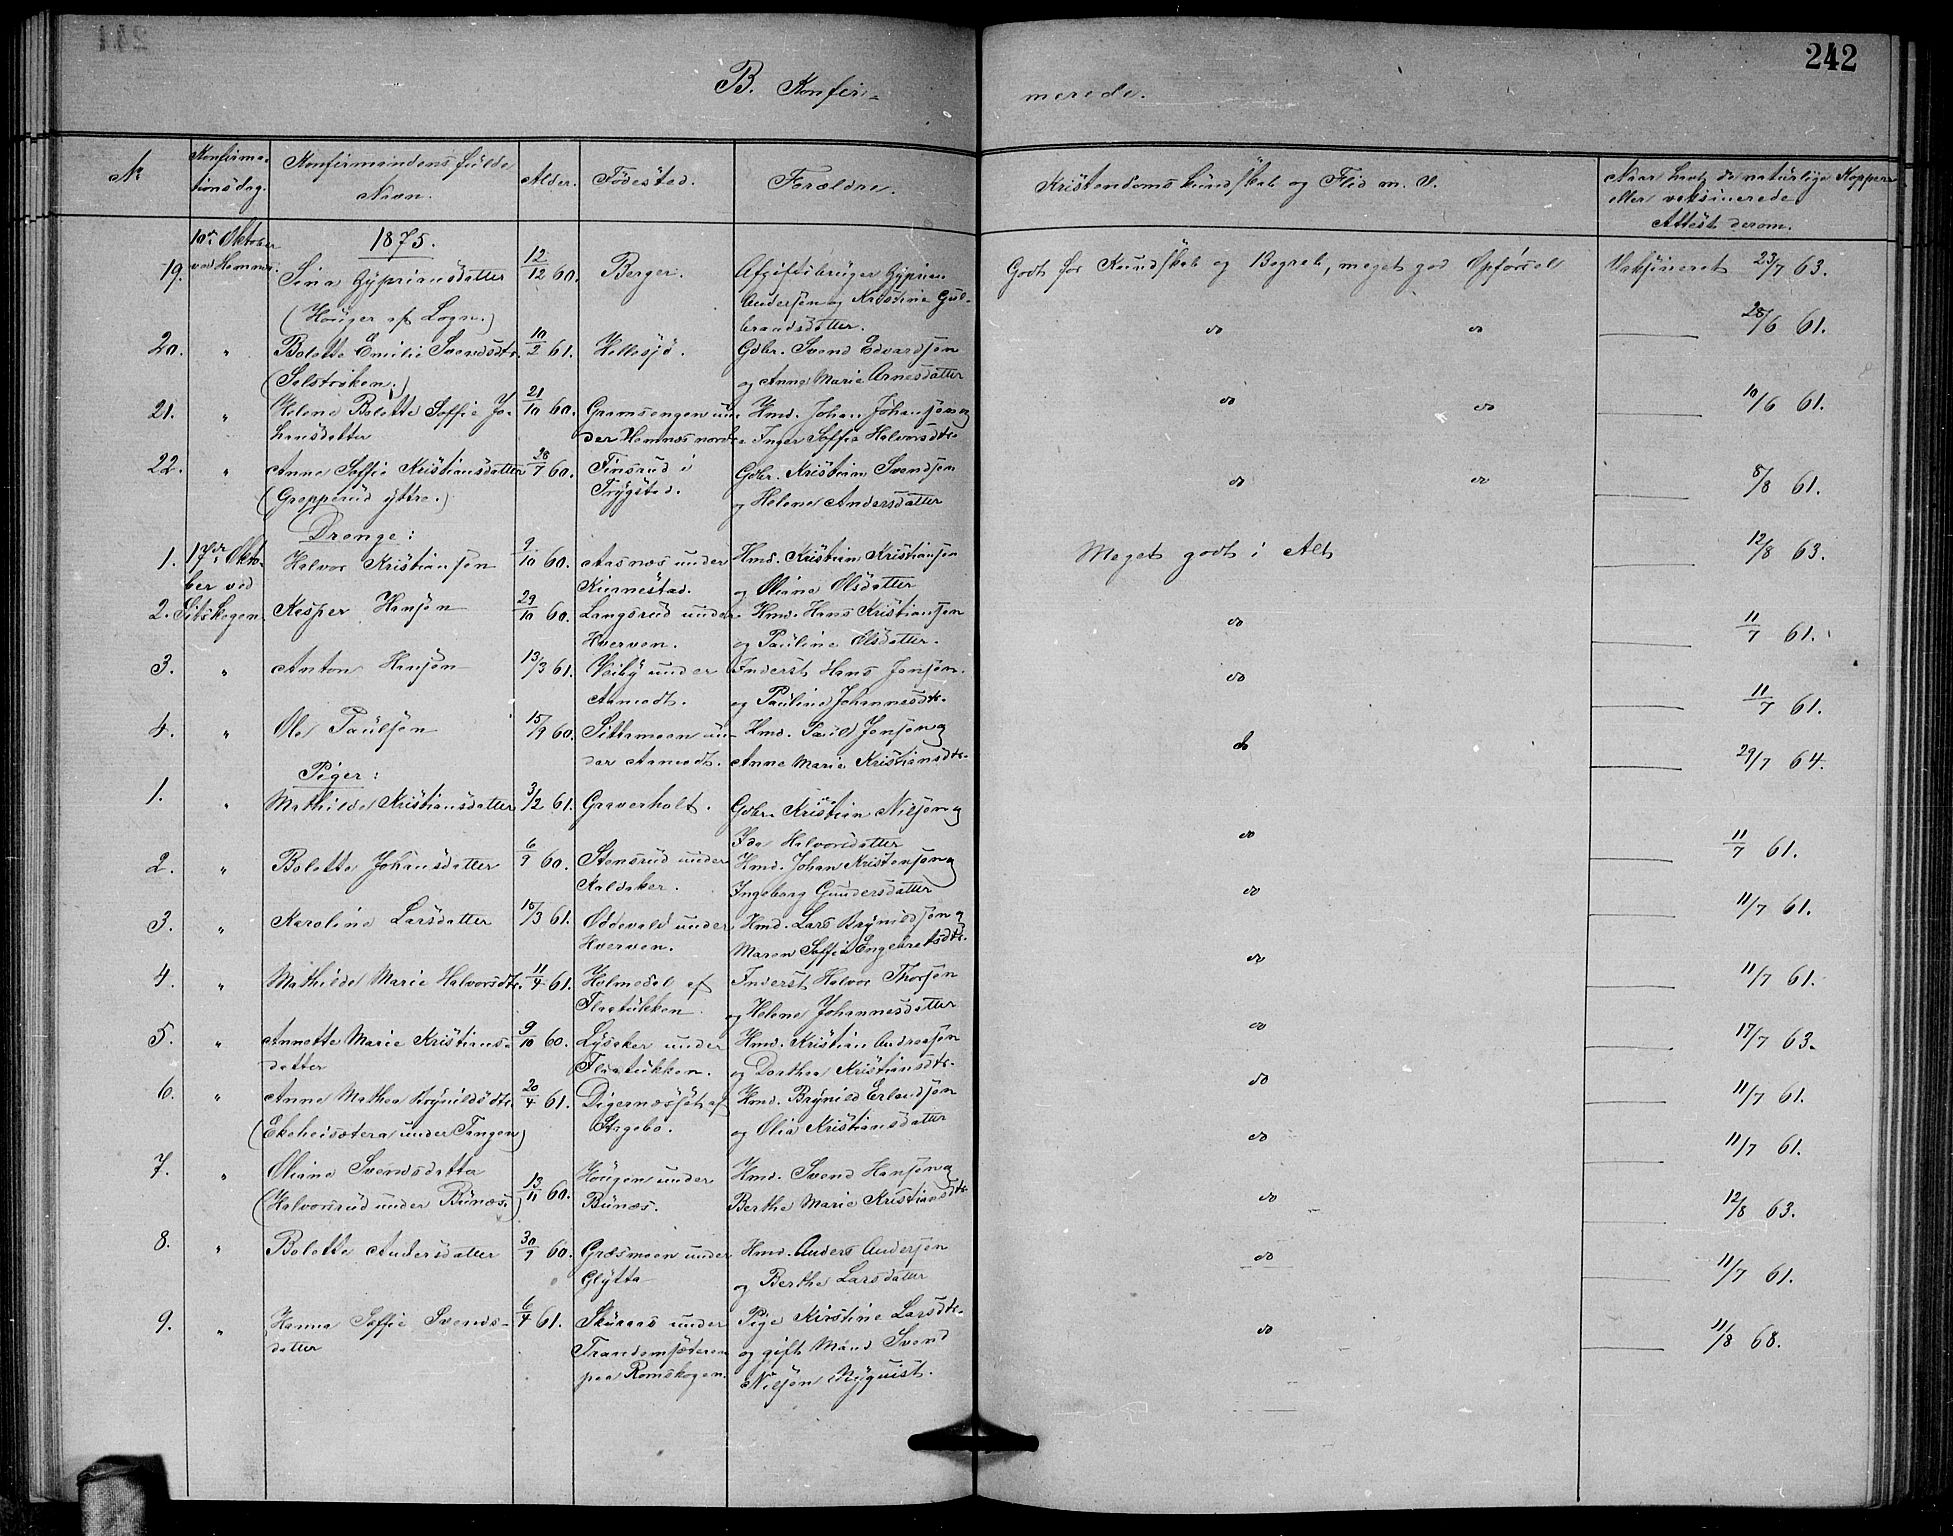 242
B. Konfir-
merede.
No
Konfirma-
tionsdag.
Konfirmandens fulde
Navn.
Alder.
Fødested.
Forældre.
Kristendomskundskab og Flid m. v.
Naar havt de naturlige Kopper
eller vaksinerede
Attest derom.
10de Oktober
ved Hemnes.
1875.
19. Sina Gypriansdatter 12/12 60. Berger. Afgiftsbruger Gyprian Godt for Kundskab og Begreb, meget god Opførsel Vaksineret 23/7 63.
(Houger af Løgn.) Andersen og Kristine Gul-
brandsdatter.
20. " Bolette Emilie Svendsdtr. 10/2 61. Hellesjø. Gdbr. Svend Edvardsen do do 28/6 61.
(Selstrøken.) og Anne Marie Arnesdatter
21. " Helene Bolette Soffie Jo- 21/10 60. Gramsengen un- Hmd. Johan Johansen og do do 10/6 61.
hansdatter der Hemnes nordre Inger Soffie Halvorsdtr.
22. " Anne Soffie Kristiansdatter 28/7 60. Finsrud i Gdbr. Kristian Svendsen do do 8/8 61.
(Grepperud yttre.) Trygstad. og Helene Andersdatter
Drenge:
1. 17de Okto- Halvor Kristiansen 9/10 60. Aasnæs under Hmd. Kristian Kristiansen Meget godt i Alt 12/8 63.
ber ved Kinnestad. og Oliane Olsdatter
2. Sitskogen. Kasper Hansen 29/10 60. Langsrud under Hmd. Hans Kristiansen do 11/7 61.
Hverven. og Pauline Olsdatter.
3. " Anton Hansen 13/3 61. Veiby under Inderst Hans Jensen do 11/7 61.
Aamodt. og Pauline Johannesdtr.
4. " Ole Paulsen 15/9 60. Sittamoen un- Hmd. Paul Jensen og do 29/7 64.
der Aamodt. Anne Marie Kristiansdtr.
Piger:
1. " Mathilde Kristiansdatter 3/2 61. Graverholt. Gdbr. Kristian Nilsen og do 11/7 61.
Ide Halvorsdatter
2. " Bolette Johansdatter 6/9 60. Stensrud under Hmd. Johan Kristensen og do 11/7 61.
Kaldaker. Ingeborg Gundersdatter
3. " Karoline Larsdatter 10/3 61. Oddevald under Hmd. Lars Brynildsen og do 11/7 61.
Hverven. Maren Soffie Engebretsdtr.
4. " Mathilde Marie Halvorsdtr. 11/4 61. Holmedal af Inderst Halvor Thorsen do 17/7 63.
Flaatukken. og Helene Johannesdatter
5. " Annette Marie Kristians- 9/10 60. Lysaker under Hmd. Kristian Andreasen do 11/7 61.
datter Flaatukken. og Dorthea Kristiansdtr.
6. " Anne Mathea Brynildsdtr. 20/4 61. Digernæssjøt af Hmd. Brynild Erlandsen do 11/7 61.
(Ekeheisætera under Tangen) Stagebo. og Olia Kristiansdatter
7. " Oliane Svendsdatter 13/11 60. Hougen under Hmd. Svend Hansen og do 12/8 63.
(Halvorsrud under Bunæs.) Bunæs. Berthe Marie Kristiansdtr.
8. " Bolette Andersdatter 30/9 60. Græsmoen under Hmd. Anders Andersen do 11/7 61.
Glytta og Berthe Larsdatter
9. " Hanna Soffie Svends- 6/4 61. Skuraas under Pige Kirstine Larsdtr. do 11/8 68.
datter Trandemsæteren og gift Mand Svend
paa Romskogen. Nilsen Nyquist.